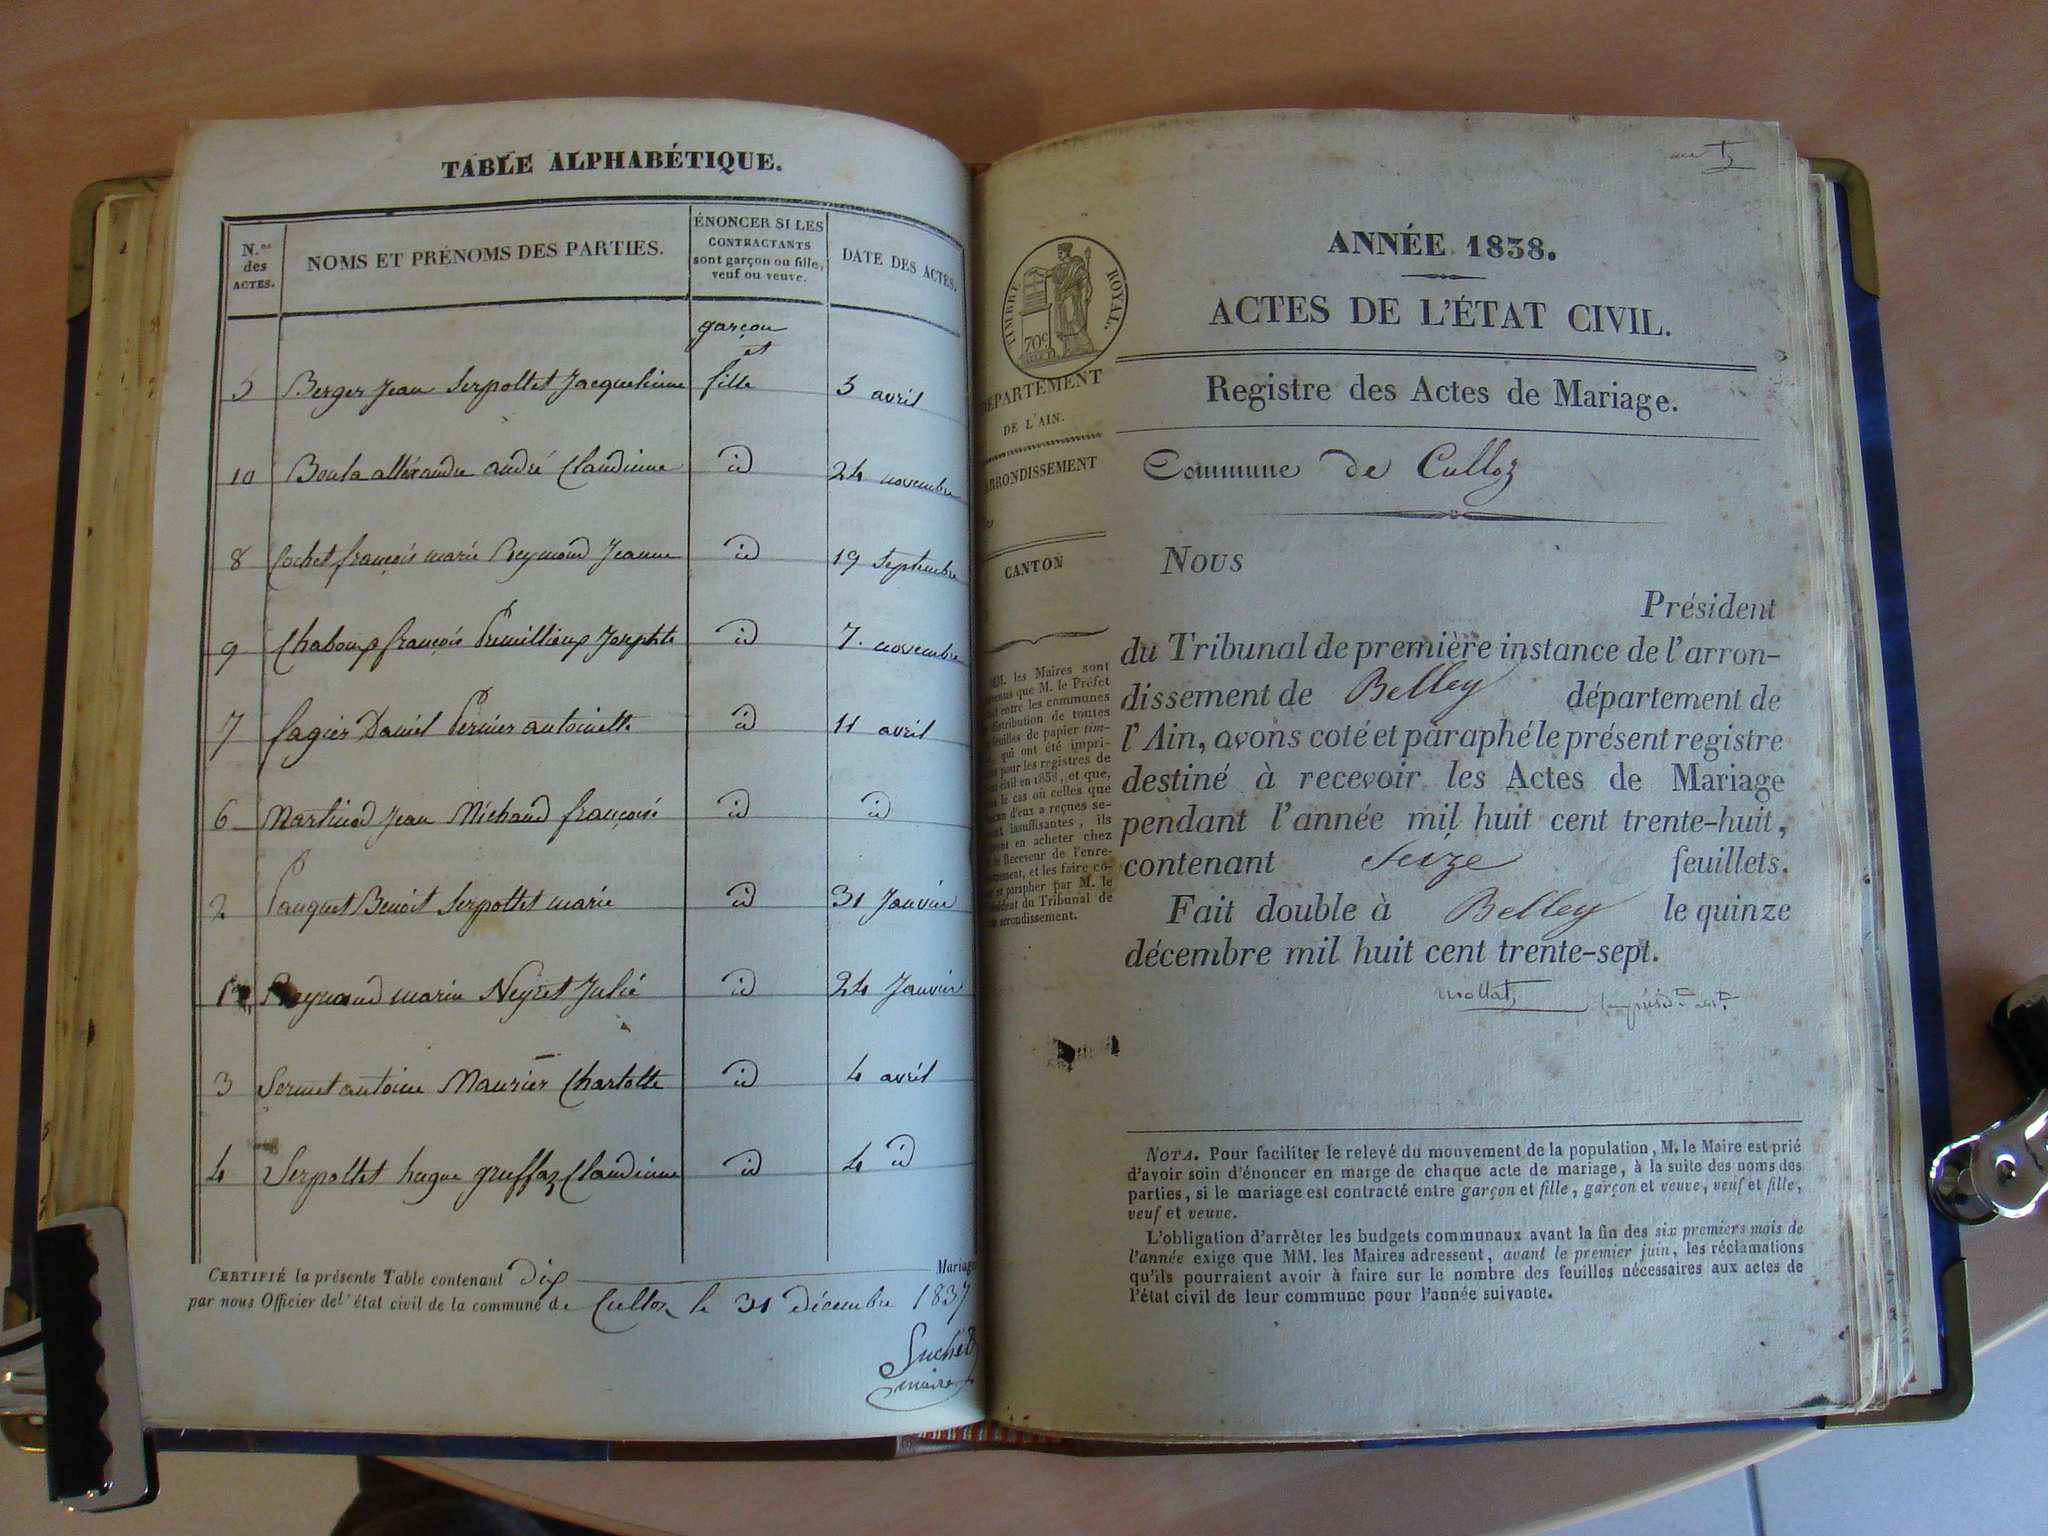 TABLE ALPHABÉTIQUE.
N.os des ACTES.
NOMS ET PRÉNOMS DES PARTIES.
ÉNONCER SI LES
CONTRACTANTS
sont garçon ou fille,
veuf ou veuve.
DATE DES ACTES.
garçon
et
5 Berger Jean Serpollet Jacquelinne fille 5 avril
10 Boula alléxandre andré Claudinne id 24 novembre
8 Cochet françois marie Reymond Jeanne id 19 septembre
9 Chaboux françois Prumillieux Josephte id 7. novembre
7 fagier Daniel Pernier antoinette id 11 avril
6 Martinod Jean Michaud françoise id id
2 Pauquet Benoit Serpollet marie id 31 Janvier
1 Reymond marin Neyret Julie id 24 Janvier
3 Sermet antoine Maurier Charlotte id 4 avril
4 Serpollet hugue gruffaz Claudinne id 4 id
CERTIFIÉ la présente Table contenant Dix Mariages
par nous Officier de l'état civil de la commune de Culloz le 31 décembre 1837
Suchet
maire
ANNÉE 1838.
ACTES DE L'ÉTAT CIVIL.
TIMBRE ROYAL.
70c
DÉPARTEMENT
DE L'AIN.
ARRONDISSEMENT
CANTON
MM. les Maires sont
que M. le Préfet
entre les communes
distribution de toutes
feuilles de papier tim-
qui ont été impri-
pour les registres de
civil en 1838, et que,
le cas où celles que
d'eux a reçues se-
insuffisantes, ils
en acheter chez
le Receveur de l'enre-
et les faire co-
et parapher par M. le
du Tribunal de
arrondissement.
Registre des Actes de Mariage.
Commune de Culloz
Nous
Président
du Tribunal de première instance de l'arron-
dissement de Belley département de
l'Ain, avons coté et paraphé le présent registre
destiné à recevoir les Actes de Mariage
pendant l'année mil huit cent trente-huit,
contenant Seize feuillets.
Fait double à Belley le quinze
décembre mil huit cent trente-sept.
NOTA. Pour faciliter le relevé du mouvement de la population, M. le Maire est prié
d'avoir soin d'énoncer en marge de chaque acte de mariage, à la suite des noms des
parties, si le mariage est contracté entre garçon et fille, garçon et veuve, veuf et fille,
veuf et veuve.
L'obligation d'arrêter les budgets communaux avant la fin des six premiers mois de
l'année exige que MM. les Maires adressent, avant le premier juin, les réclamations
qu'ils pourraient avoir à faire sur le nombre des feuilles nécessaires aux actes de
l'état civil de leur commune pour l'année suivante.